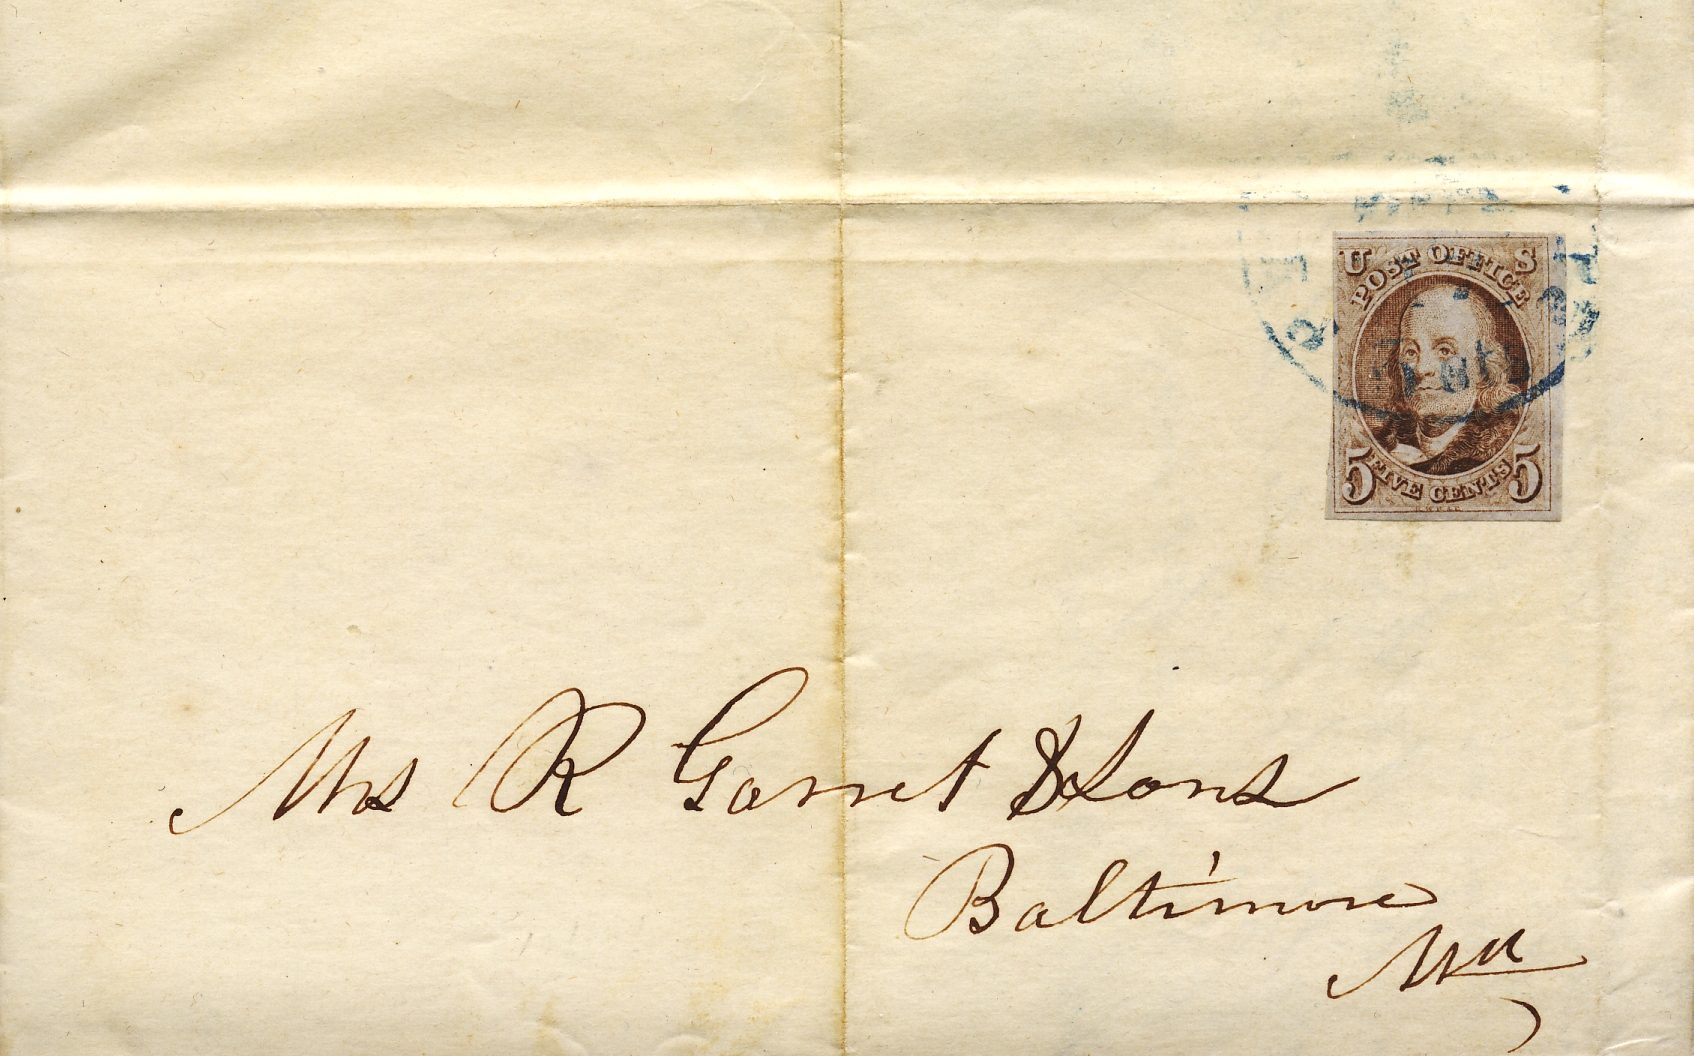 U S
POST OFFICE
5 FIVE CENTS 5
Mrs R Garret & Sons
Baltimore
Md